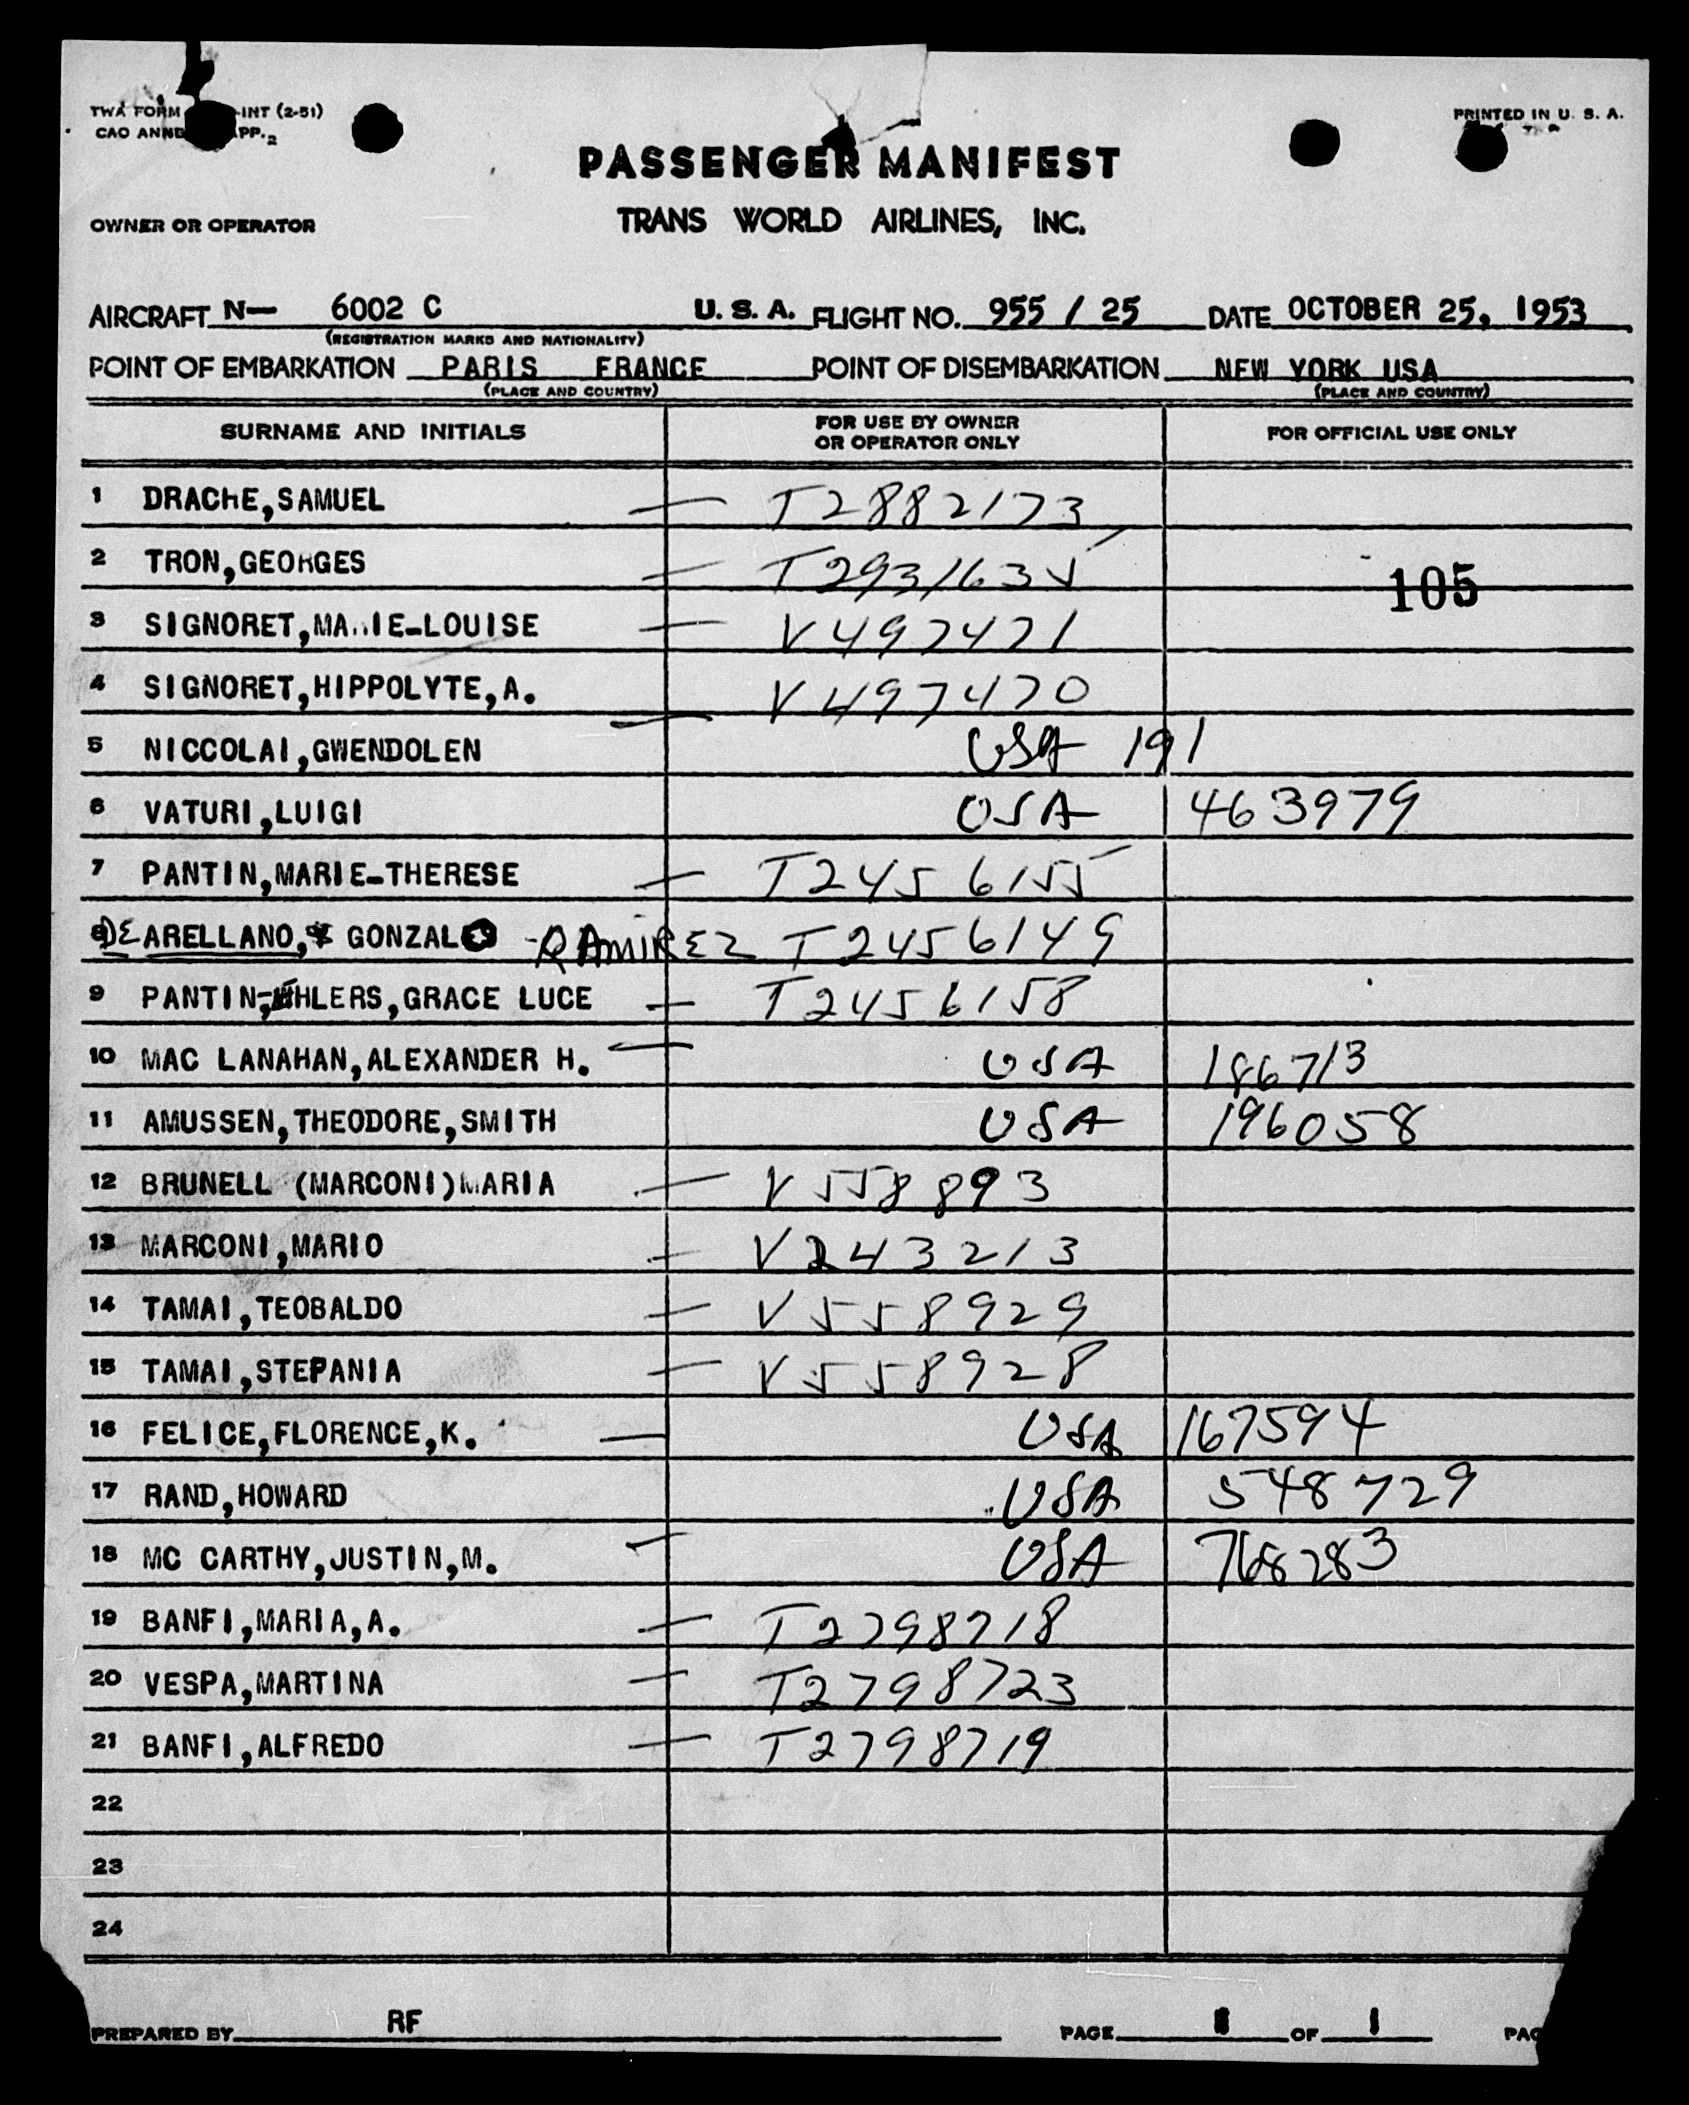 TWA FORM -INT (2-51)
CAO ANNE APP. 2
PRINTED IN U. S. A.
PASSENGER MANIFEST
OWNER OR OPERATOR TRANS WORLD AIRLINES, INC.
AIRCRAFT N— 6002 C U. S. A. FLIGHT NO. 955 / 25 DATE OCTOBER 25, 1953
(REGISTRATION MARKS AND NATIONALITY)
POINT OF EMBARKATION PARIS FRANCE POINT OF DISEMBARKATION NEW YORK USA
(PLACE AND COUNTRY) (PLACE AND COUNTRY)
SURNAME AND INITIALS FOR USE BY OWNER OR OPERATOR ONLY FOR OFFICIAL USE ONLY
1 DRACHE,SAMUEL — T2882173
2 TRON,GEORGES — T2931635
105
3 SIGNORET,MARIE-LOUISE — V497471
4 SIGNORET,HIPPOLYTE,A. — V497470
5 NICCOLAI,GWENDOLEN USA 191
6 VATURI,LUIGI USA 463979
7 PANTIN,MARIE-THERESE — T2456155
8 DE ARELLANO, GONZALO -RAMIREZ T2456149
9 PANTIN-HLERS,GRACE LUCE — T2456158
10 MAC LANAHAN,ALEXANDER H. — USA 186713
11 AMUSSEN,THEODORE,SMITH USA 196058
12 BRUNELL (MARCONI)MARIA — V558893
13 MARCONI,MARIO — V243213
14 TAMAI,TEOBALDO — V558929
15 TAMAI,STEPANIA — V558928
16 FELICE,FLORENCE,K. — USA 167594
17 RAND,HOWARD USA 548729
18 MC CARTHY,JUSTIN,M. — USA 768283
19 BANFI,MARIA,A. — T2798718
20 VESPA,MARTINA — T2798723
21 BANFI,ALFREDO — T2798719
22
23
24
PREPARED BY RF PAGE 1 OF 1 PAG